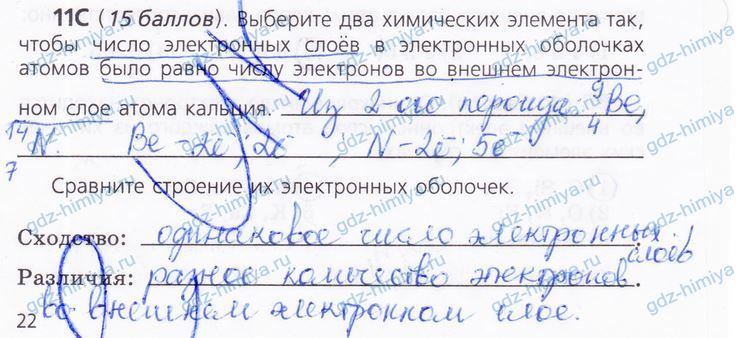 11С (15 баллов). Выберите два химических элемента так,
чтобы число электронных слоёв в электронных оболочках
атомов было равно числу электронов во внешнем электрон-
ном слое атома кальция. Из 2-ого периода 9 4 Be,
14 7 N. Be – 2e⁻; 2e⁻, N – 2e⁻; 5e⁻
Сравните строение их электронных оболочек.
Сходство: одинаковое число электронных слоёв
Различия: разное количество электронов
во внешнем электронном слое.
22
gdz-himiya.ru